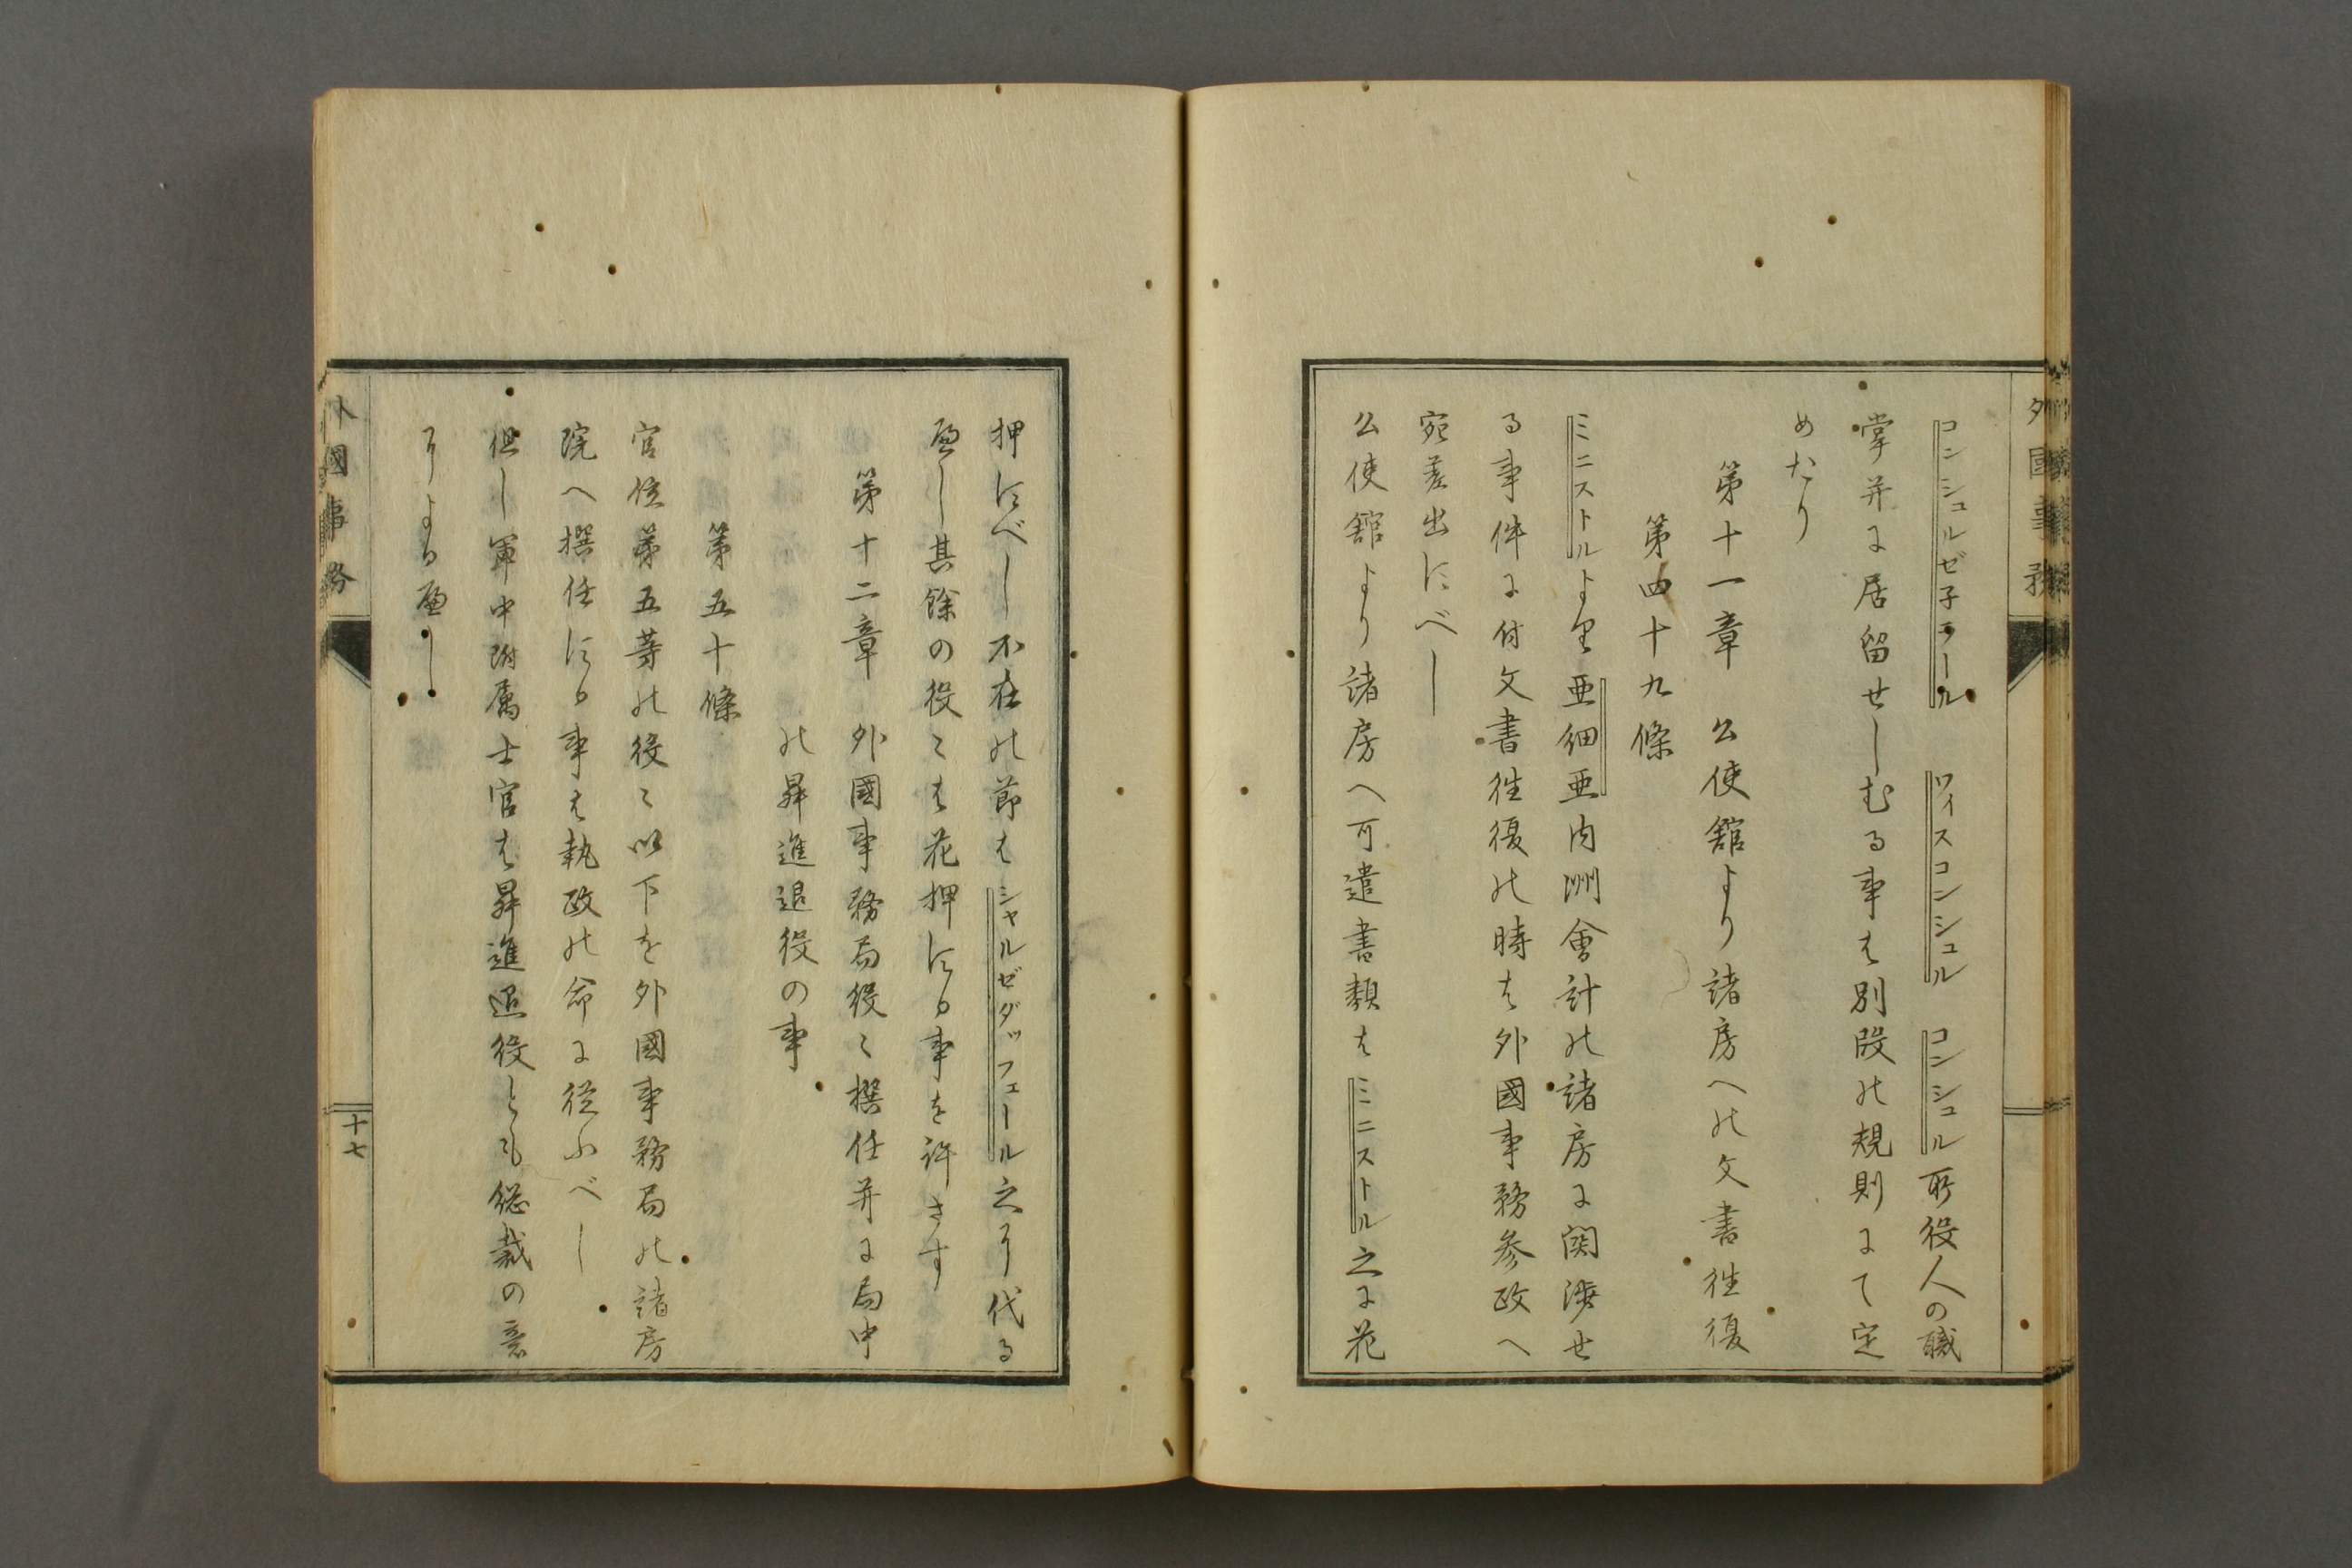 外國事務
コンシュルゼ子ラール　ワイスコンシュル　コンシュル所役人の職
掌并に居留せしむる事は別段の規則にて定
めたり
第十一章　公使舘より諸房への文書徃復
第四十九條
ミニストルより亜細亜内洲會計の諸房に関渉せ
る事件に付文書徃復の時は外國事務参政へ
宛差出すべし
公使舘より諸房へ可遣書類はミニストル之に花
押すべし不在の節はシャルゼダッフェール之に代る
べし其餘の役々は花押する事を許さす
第十二章　外國事務局役々撰任并に局中
の昇進退役の事
第五十條
官位第五等の役々以下を外國事務局の諸房
院へ撰任する事は執政の命に従ふべし
但し軍中附属士官は昇進退役とも総裁の意
による べし
外國事務
十七